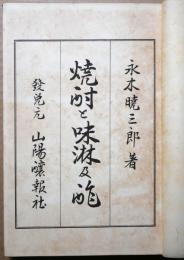 永木曉三郎 著
燒酎と味淋及酢
發兌元 山陽釀報社